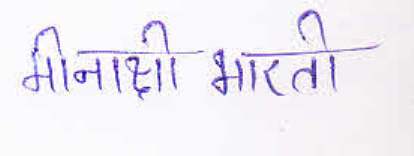 मीनाक्षी भारती